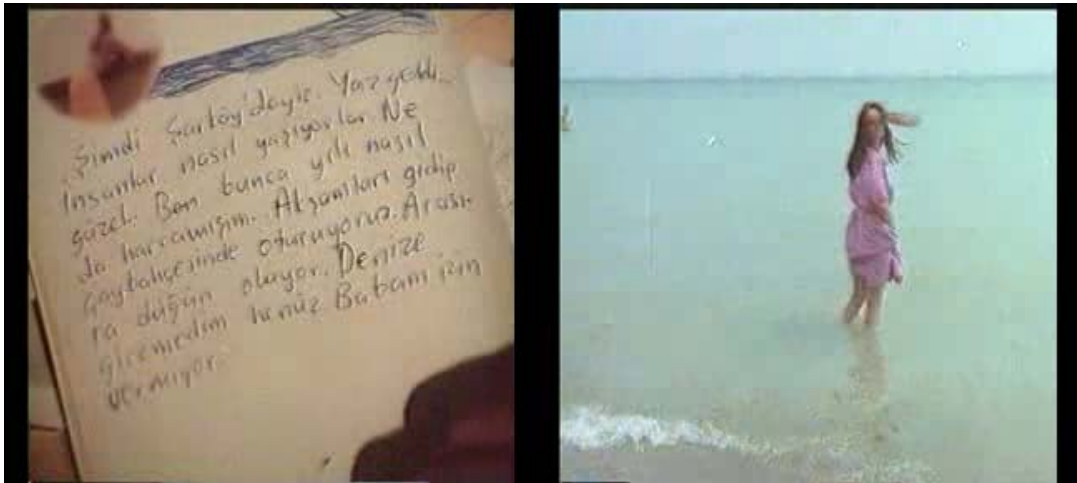 Şimdi Şarköy'deyiz. Yaz geldi.
İnsanlar nasıl yaşıyorlar. Ne
güzel. Ben bunca yılı nasıl
da harcamışım. Akşamları gidip
çaybahçesinde oturuyoruz. Arası-
ra düğün oluyor. Denize
giremedim henüz Babam izin
vermiyor.